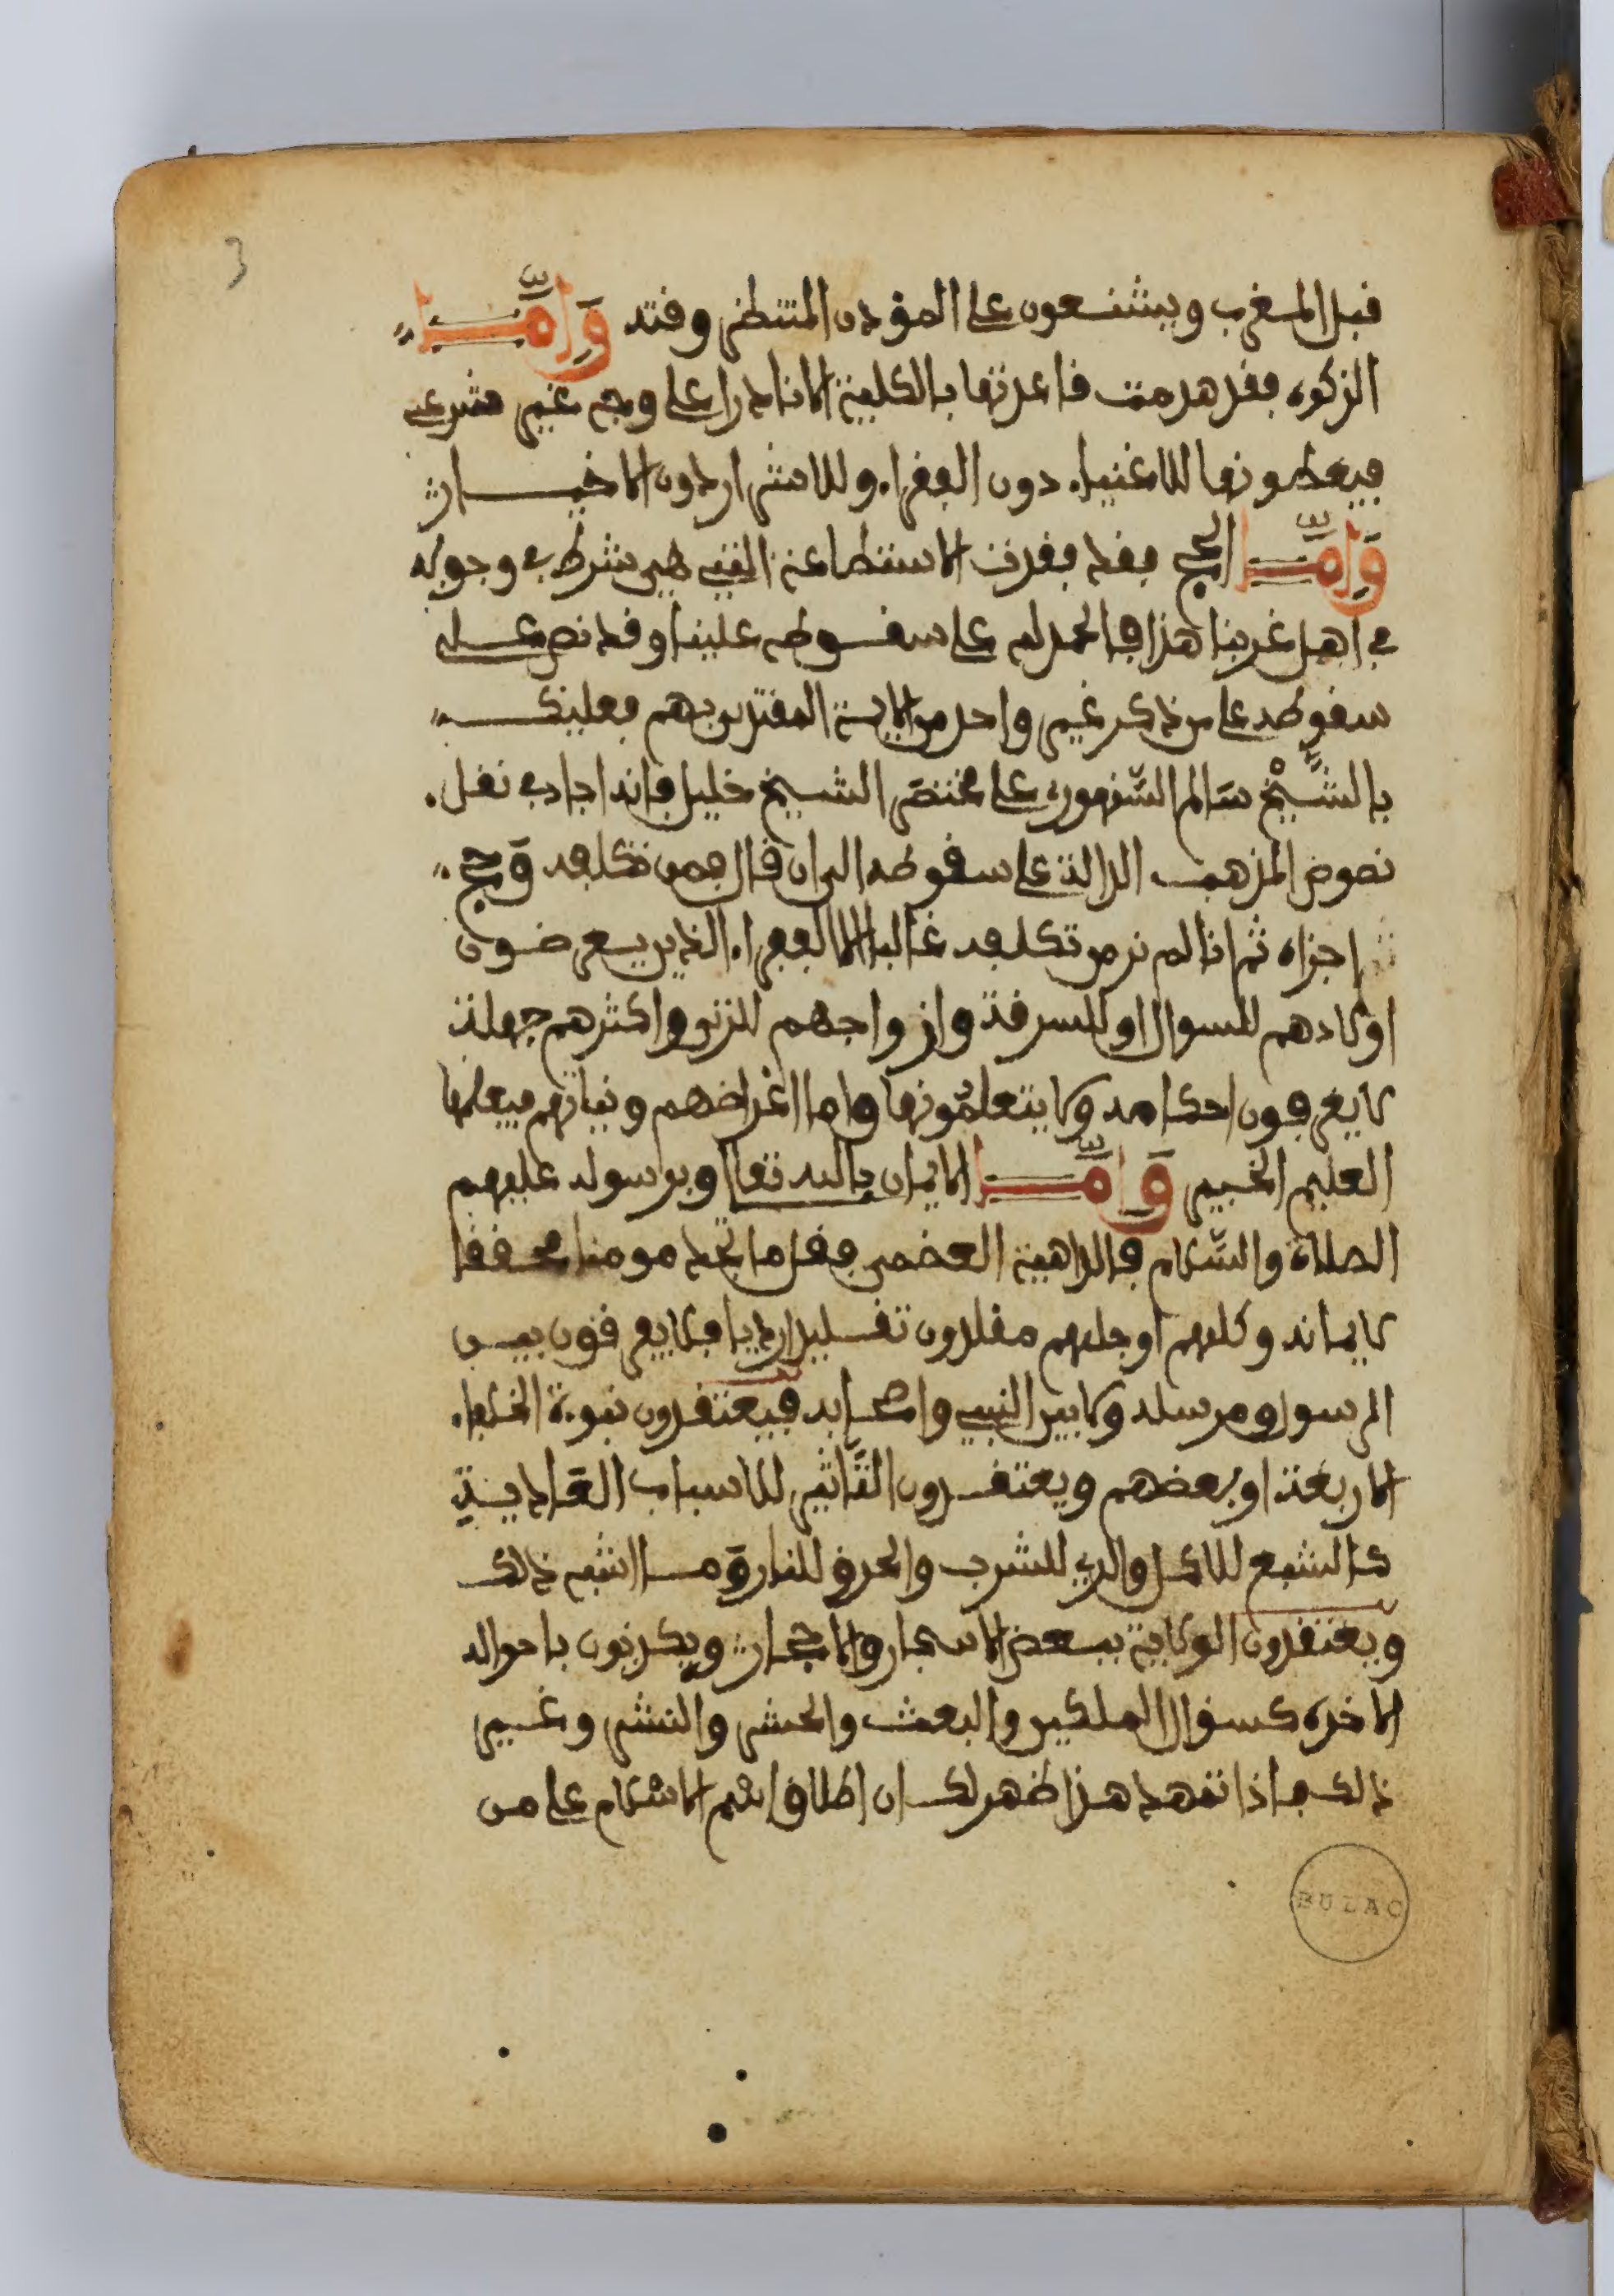 3
قبل المغرب ويشنعون على المؤذن المنتظر وقته وَامَّــا
الزكوة فقد هدمت قاعدتها بالكلية الا نادرا على وجه غير شرعي
فيعطونها للاغنياء دون الفقراء وللاشرار دون الاخيــار
وَامَّــا الحج فقد فقدت الاستطاعة التي هي شرط في وجوبه
في اهل غربنا هذا فالحمد لله على سقوطه علينا وقد نص على
سقوطه على من ذكر غير واحد من الايمة المقتدى بهم فعليك
بالشَّيْخ سَالم السّنهوري على مختصَر الشيخ خليل فانه اجاد في نقل
نصوص المذهب الدالة على سقوطه الى ان قال فمن تكلفه وَحج
اجزاه ثم انا لم نر من تكلفه غالبا الا الفقراء الذين يعرضون
اولادهم للسوال او للسرقة وازواجهم للزنى واكثرهم جهلة
لا يعرفون احكامه ولا يتعلمُونها واما اغراضهم ونياتهم فيعلمها
العليم الخبير وَامَّــا الايمان بالله تعالى وبرسوله عليهم
الصلاة والسّلام فالداهية العضمى فقل ما تجد مومنا محققا
لايمانه وكلهم اوجلهم مقلدون تقليدا رديا فلا يعرفون بيــن
الرسول ومرسله ولا بين النبي واصحابه فيعتقدون نبوءة الخلفاء
الاربعة او بعضهم ويعتقدون التَّاثير للاسباب العَاديــة
كالشبع للاكل والري للشرب والحرق للنار وَمــا اشبه ذلك
ويعتقدون الولاية ببعض الاشجار والاحجار ويكذبون باحواله
الاخرة كسؤال الملكين والبعث والحشر والنشر وغــير
ذلك فاذا تمهد هذا ظهر لك ان اطلاق اسم الاسلام على من
BULAC